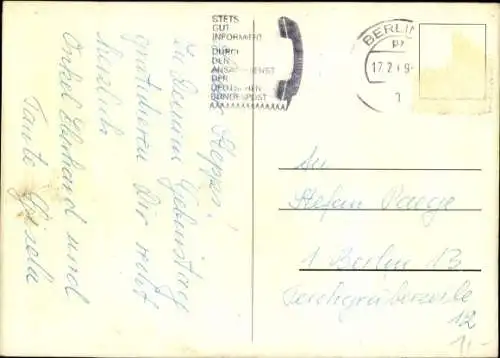 STETS
GUT
INFORMIERT
DURCH
DEN
ANSAGEDIENST
DER
DEUTSCHEN
BUNDESPOST
BERLIN
17.2
Steppi!
Zu Deinem Geburtstag
gratulieren Dir recht
herzlich
Onkel Ekkehard und
Tante Gisela
An
Stefan Paege
1 Berlin 13
12